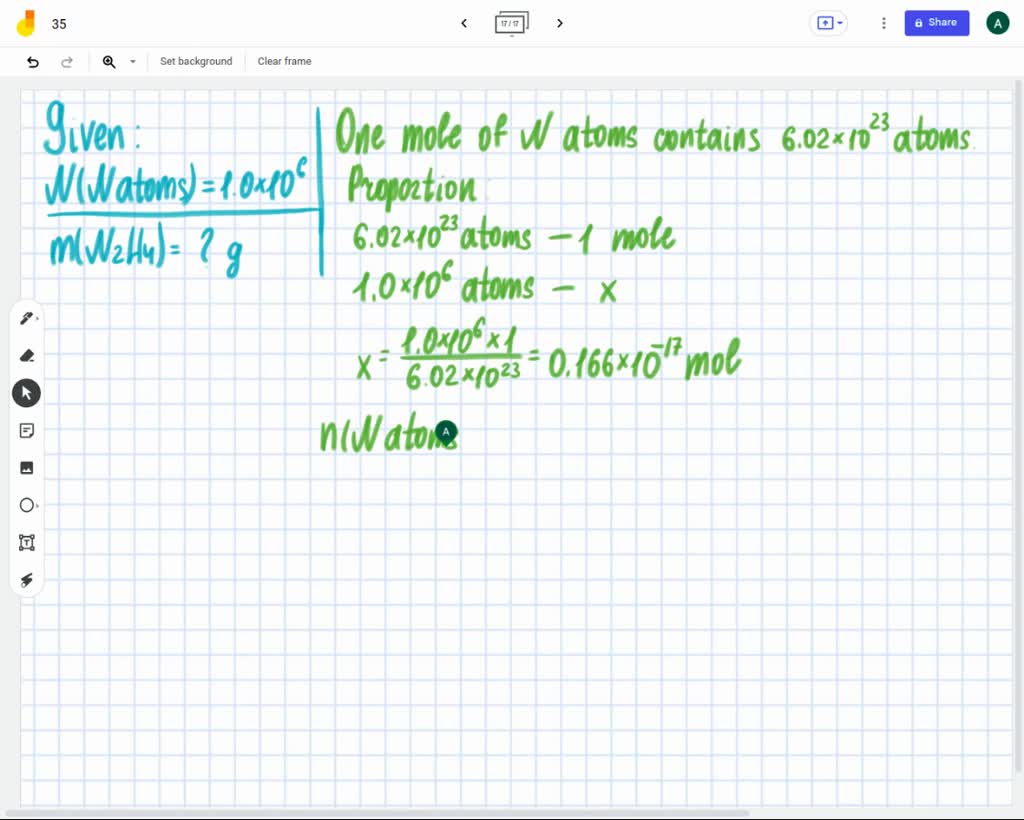 35
17 / 17
Share
A
Set background
Clear frame
Given:
N(N atoms) = 1.0×10⁶
m(N₂H₄) = ? g
One mole of N atoms contains 6.02×10²³ atoms.
Proportion:
6.02×10²³ atoms – 1 mole
1.0×10⁶ atoms – x
x = 1.0×10⁶ × 1 / 6.02×10²³ = 0.166×10⁻¹⁷ mol
n(N atoms
A
T